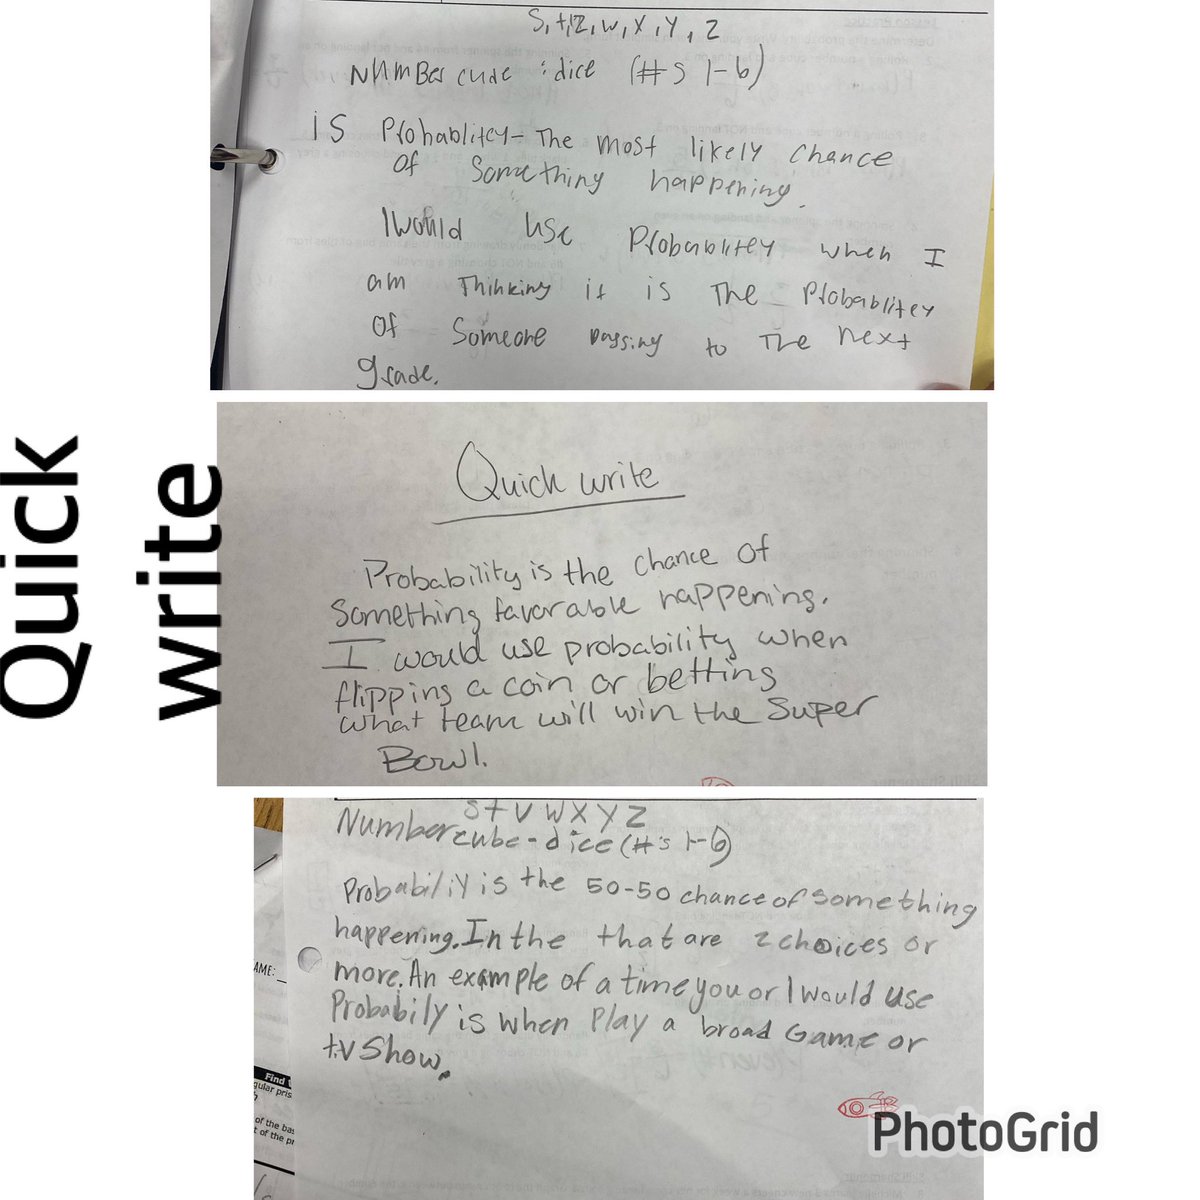 Quick
write
S, t, Z, W, X, Y, Z
Number cude : dice (#s 1-6)
is Probablitey - The most likely chance
of Something happening.
I Would use Probablitey when I
am Thinking if is The Probablitey
Of Someone passing to The next
grade.
Quick write
Probability is the chance of
something favorable happening.
I would use probability when
flipping a coin or betting
what team will win the Super
Bowl.
S t V W X Y Z
Number cube - dice (#'s 1-6)
Probabiliy is the 50-50 chance of something
happening. In the that are 2 choices or
more. An example of a time you or I would use
Probabily is when Play a broad Game or
t.v Show.
AME:
Find
gular pris
of the bas
t of the pr
PhotoGrid